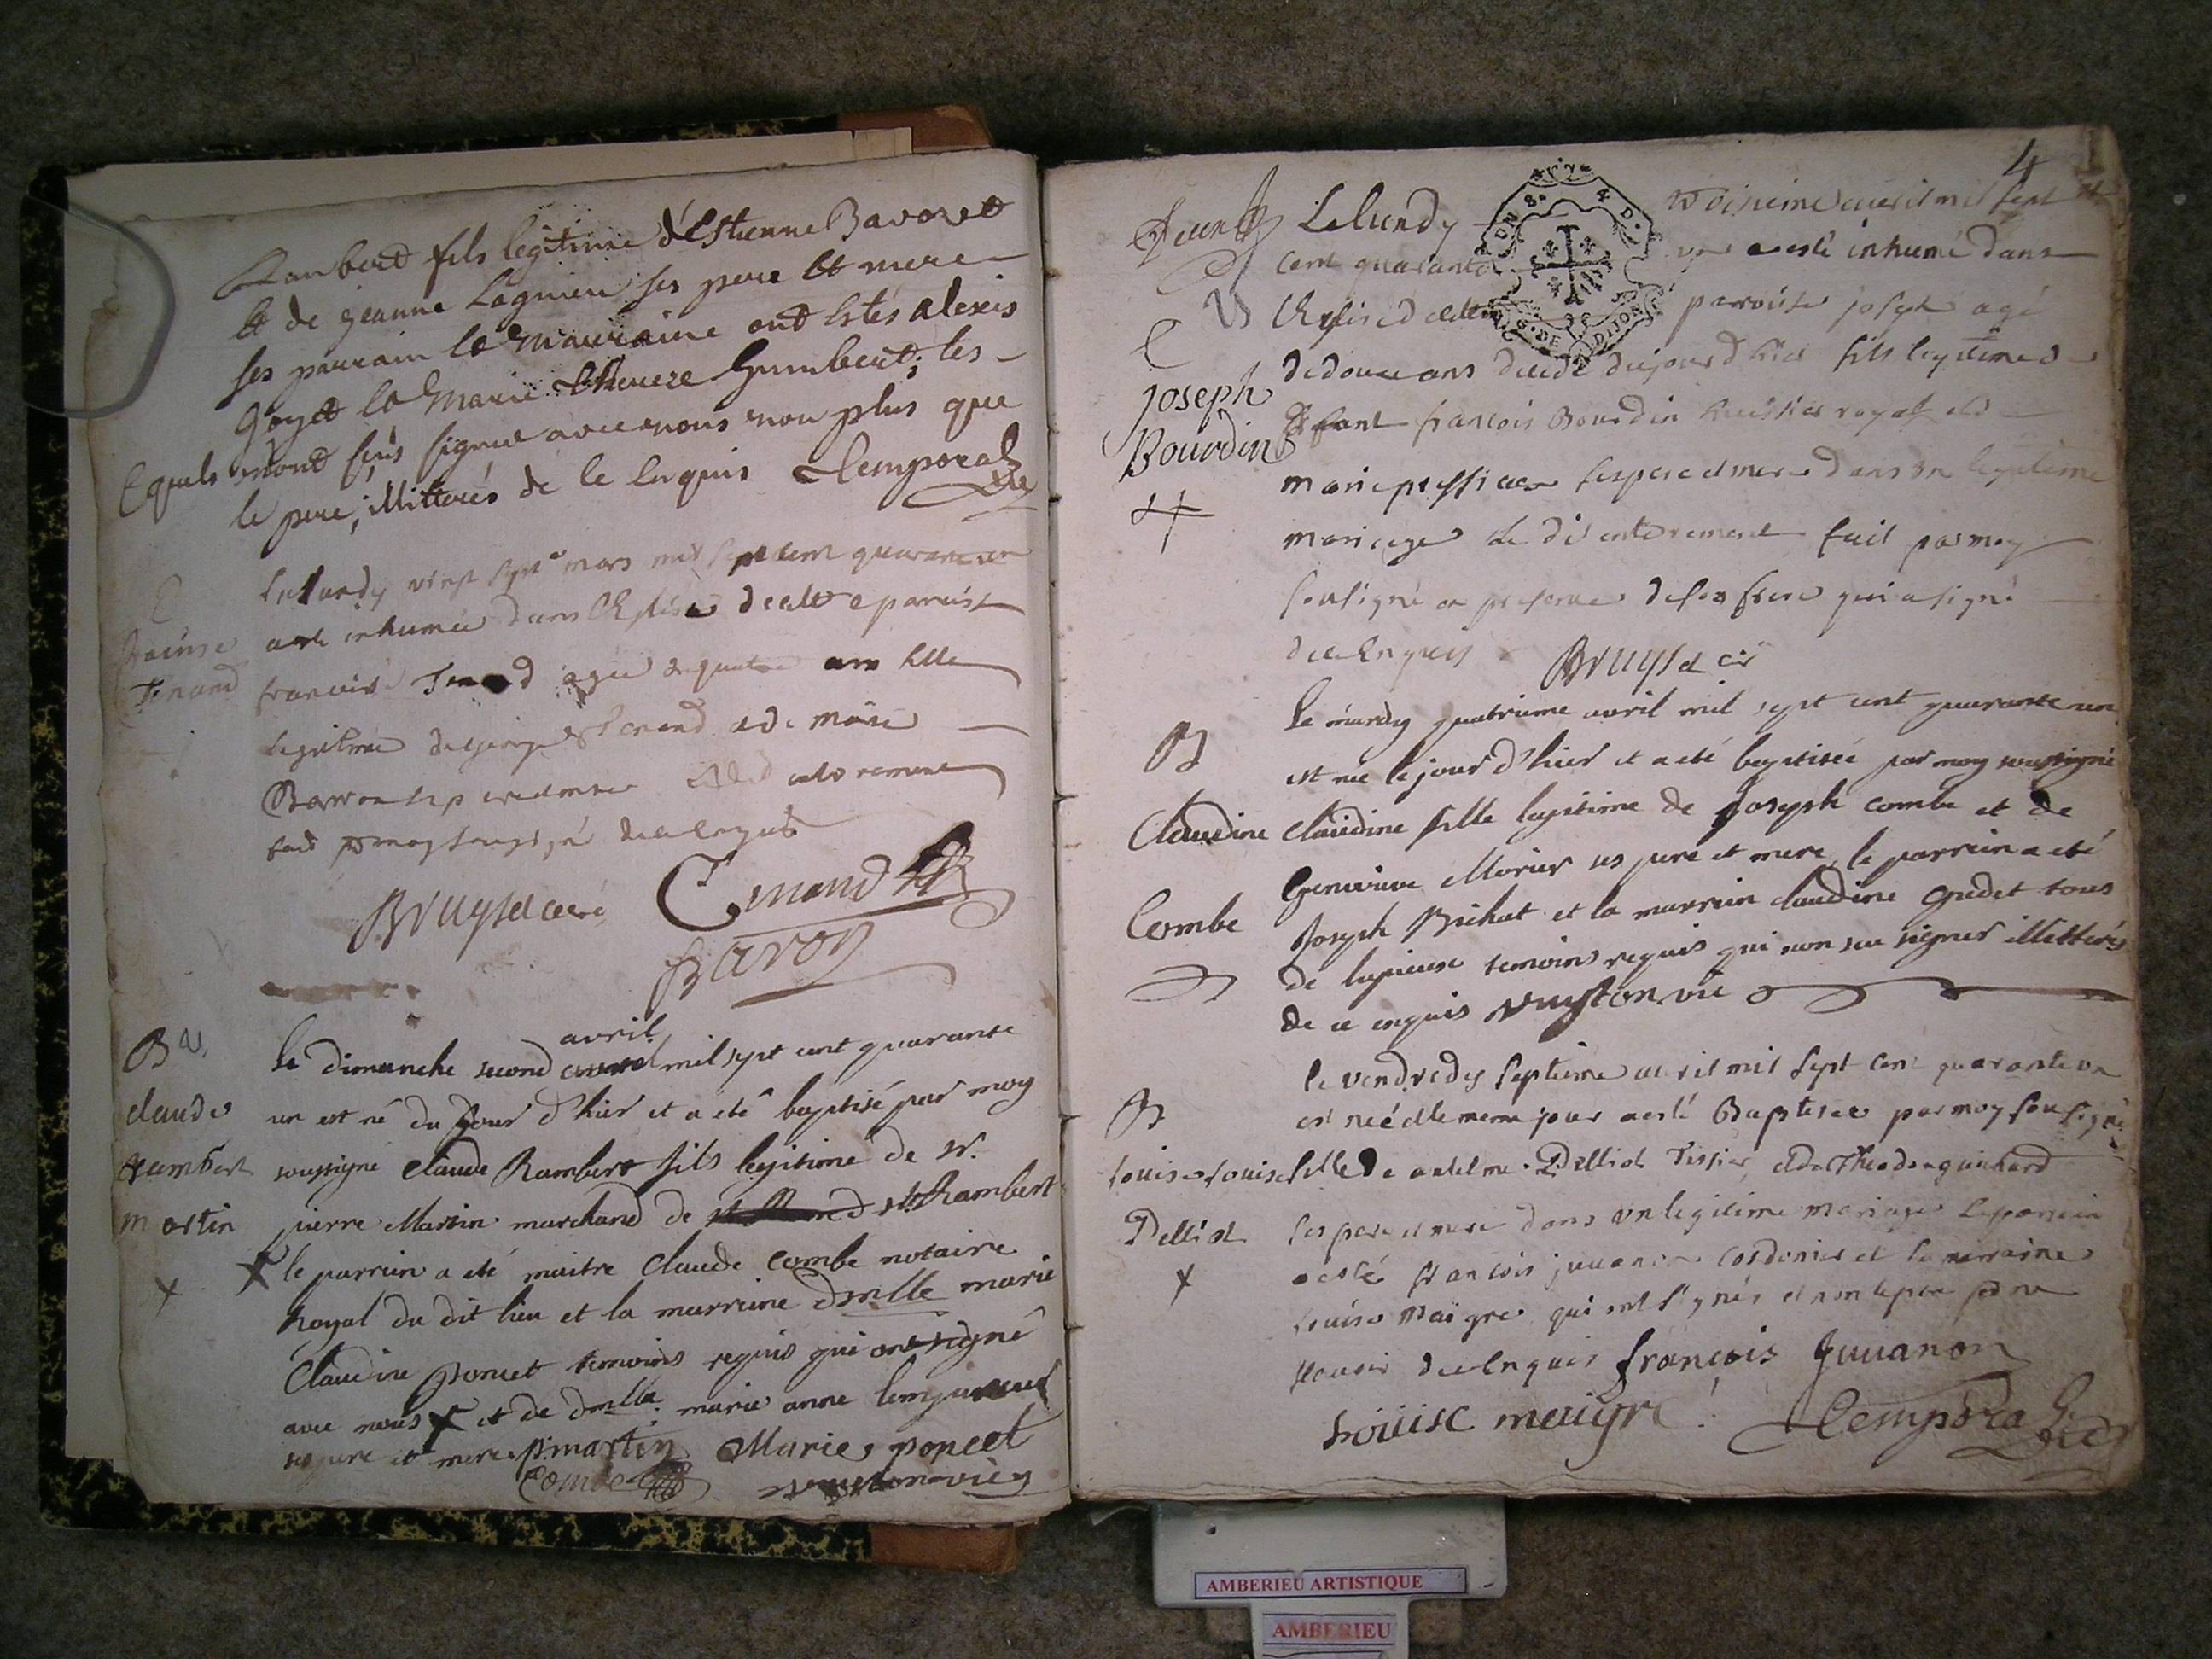 Rambert fils legitime d'Estienne Bavozet
et de jeanne Lagnieu ses pere et mere
ses parrain et Marraine ont estés alexis
Goyet et Marie therese Humbert; les-
quels n'ont sçus signer avec nous non plus que
le pere, illitterés de ce enquis Temporal vic
Le lundy vingt sept mars mil sept cent quarante un
a este inhumée dans l'Eglise de cette paroisse
francoise Tenand agée de quatre ans fille
Legitime de george Tenand et de marie
Baron ses pere et mere le dit enterement
fait par moy soussigné de ce enquis
Bruyset curé Tenand
Baron
francoise
Tenand
B
claude
Rambert
martin
avril
le dimanche second mil sept cent quarante
un est né du jour d'hier et a eté baptisé par moy
soussigné claude Rambert fils legitime de sr.
pierre Martin marchand de st Rambert
le parrain a eté maitre claude combe notaire
Royal du dit lieu et la marraine dmlle marie
claudine poncet temoins requis qui ont signé
avec nous et de dmlle marie anne
ses pere et mere p. martin Marie poncet
Combe
4
Le lundy troisieme avril mil sept
cent quarante un a esté inhumé dans
l'Eglise de cette paroisse joseph agé
de douze ans decedé du jour d'hier fils legitime
francois Bourdin huissier royal et de
marie ses pere et mere dans un legitime
mariage Le dit enterement fait par moy
soussigné en presence de son frere qui a signé
de ce enquis Bruyset curé
joseph
Bourdin
B
Claudine
Combe
le mardy quatrieme avril mil sept cent quarante un
est née le jour d'hier et a eté baptisée par moy soussigné
claudine fille legitime de Joseph combe et de
Genevieve Morier ses pere et mere, le parrain a eté
Joseph Bichat et la marrein claudine Gudet tous
de temoins requis qui n'on seu signer illitterés
de ce enquis
B
Louise
Pelliot
le vendredy septieme avril mil sept cent quarante un
est neé et le meme jour a esté Baptisée par moy soussigné
Louise fille de antelme Pelliot Tissier, et de guichard
ses pere et mere dans un legitime mariage Le parrein
a esté francois juuanon cordonier et la marraine
Louise maigre qui ont signés et non le pere pour ne
scavoir de ce enquis françois Juuanon
Loüise maigre Temporal vic
AMBERIEU ARTISTIQUE
AMBERIEU